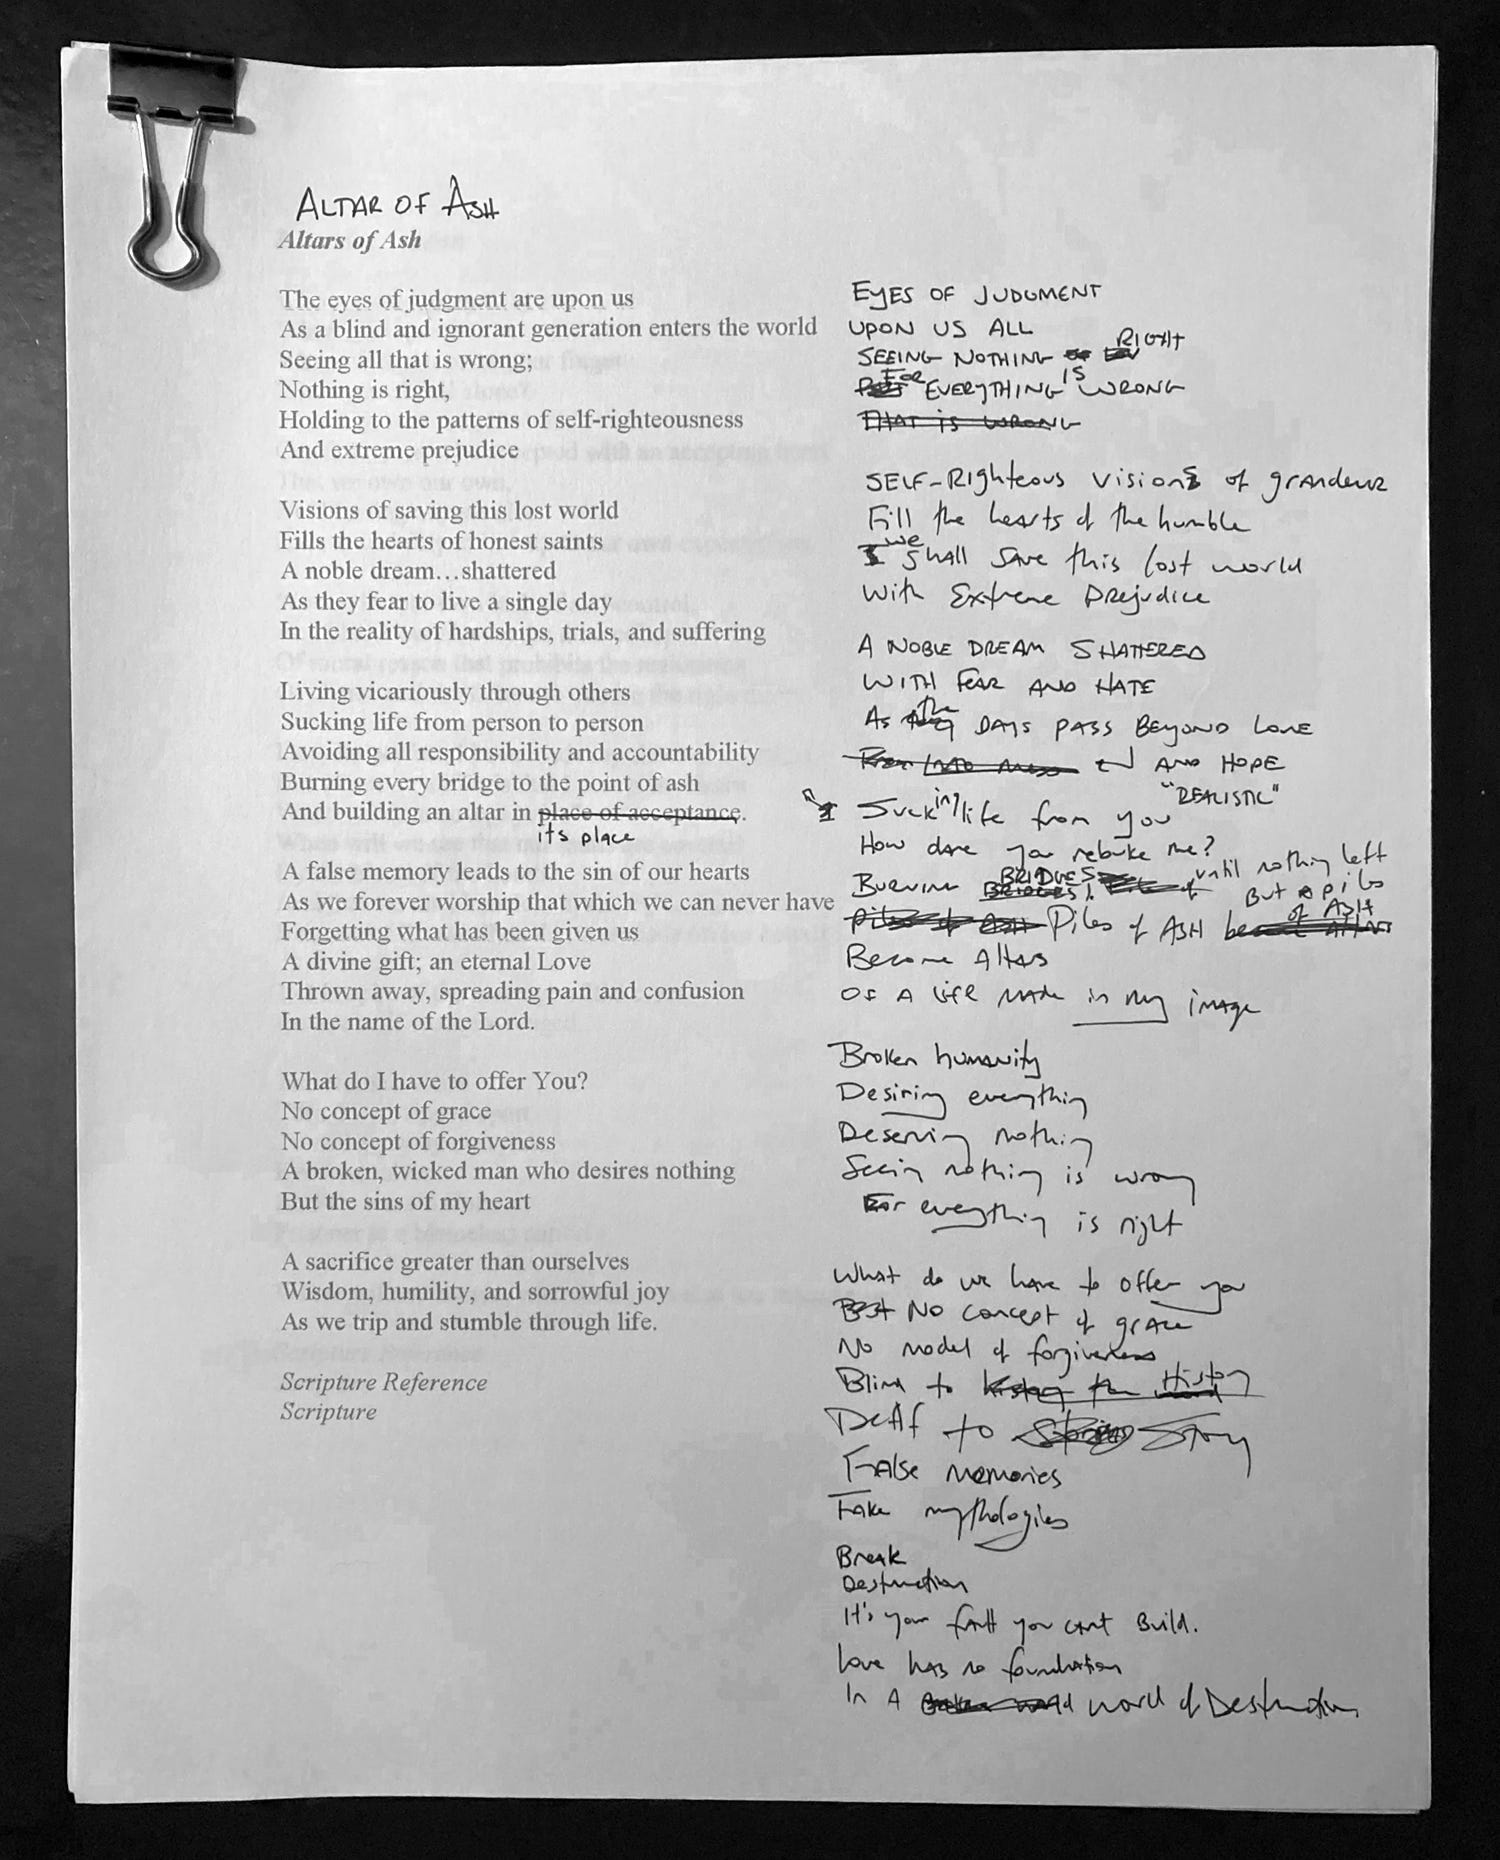 ALTAR OF ASH
Altars of Ash
The eyes of judgment are upon us
As a blind and ignorant generation enters the world
Seeing all that is wrong;
Nothing is right,
Holding to the patterns of self-righteousness
And extreme prejudice
Visions of saving this lost world
Fills the hearts of honest saints
A noble dream…shattered
As they fear to live a single day
In the reality of hardships, trials, and suffering
Living vicariously through others
Sucking life from person to person
Avoiding all responsibility and accountability
Burning every bridge to the point of ash
And building an altar in place of acceptance.
its place
A false memory leads to the sin of our hearts
As we forever worship that which we can never have
Forgetting what has been given us
A divine gift; an eternal Love
Thrown away, spreading pain and confusion
In the name of the Lord.
What do I have to offer You?
No concept of grace
No concept of forgiveness
A broken, wicked man who desires nothing
But the sins of my heart
A sacrifice greater than ourselves
Wisdom, humility, and sorrowful joy
As we trip and stumble through life.
Scripture Reference
Scripture
EYES OF JUDGMENT
UPON US ALL
SEEING NOTHING RIGHT
FOR EVERYTHING IS WRONG
THAT is WRONG
SELF-Righteous visions of grandeur
Fill the hearts of the humble
we shall save this lost world
With Extreme Prejudice
A NOBLE DREAM SHATTERED
WITH FEAR AND HATE
As the DAYS PASS BEYOND LOVE
AND HOPE
"REALISTIC"
Sucking life from you
How dare you rebuke me?
BURNING BRIDGES until nothing left
BUT a pile
of ASH
Piles of ASH
Become Altars
OF A LIFE MADE in my image
Broken humanity
Desiring everything
Deserving nothing
Seeing nothing is wrong
For everything is right
What do we have to offer you
No concept of grace
No model of forgiveness
Blind to History
Deaf to Story
False memories
Fake mythologies
Break
Destruction
It's your fault you can't Build.
Love has no foundation
In A world of Destruction